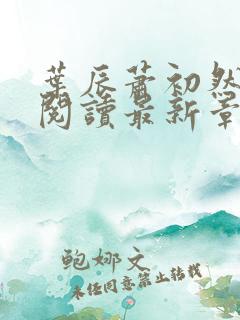 葉辰蕭初然
閱讀最新章
鲍娜文
未任同意禁止转载